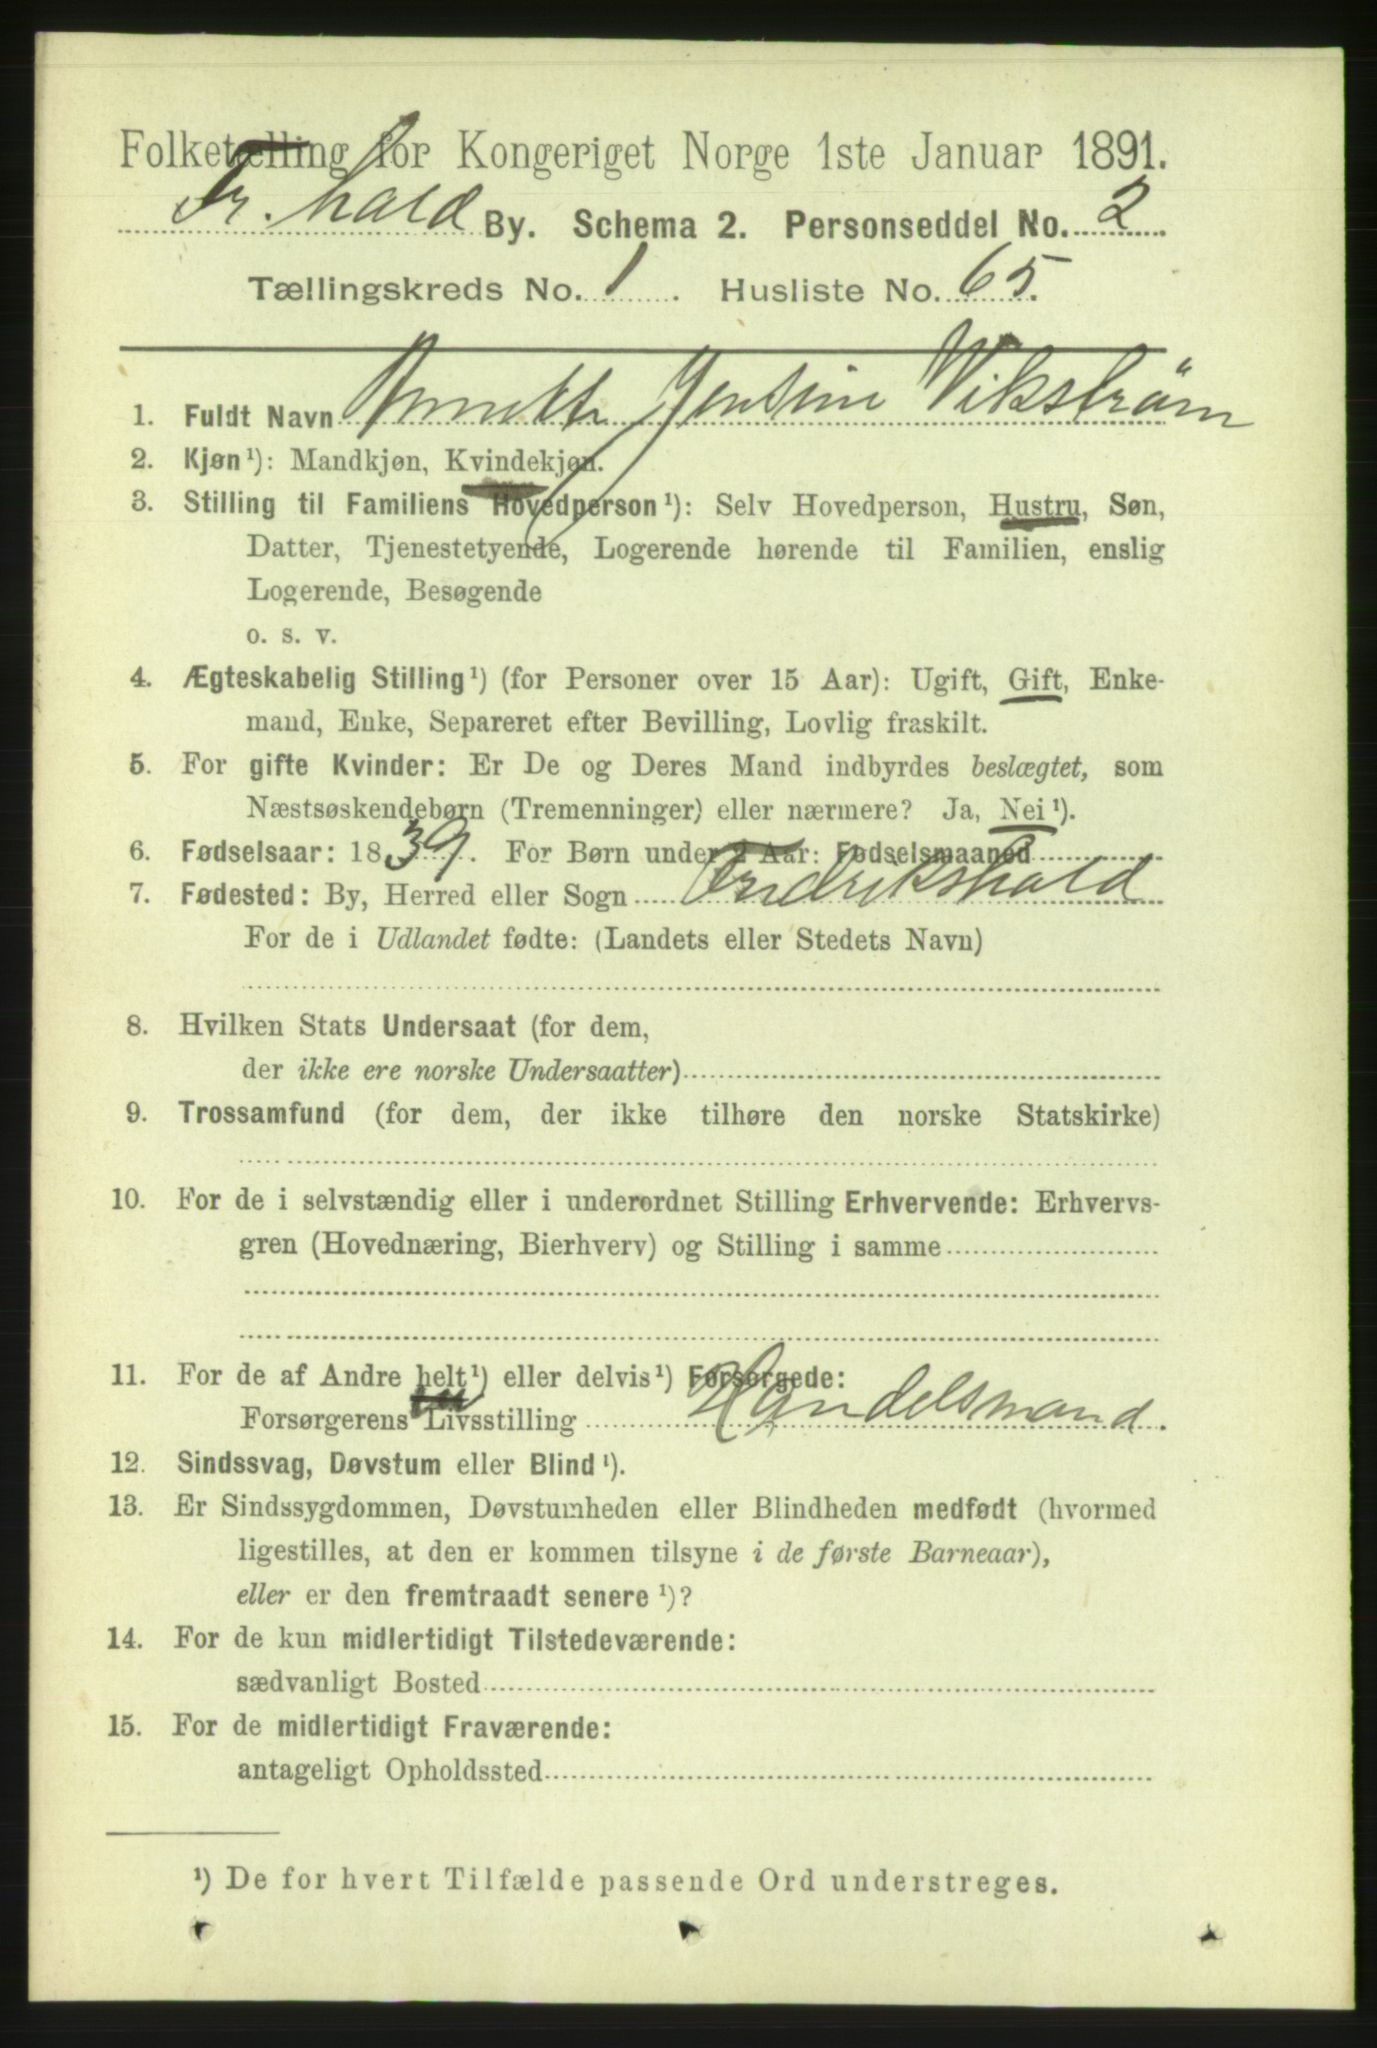 Folketælling for Kongeriget Norge 1ste Januar 1891.
Fr.hald By. Schema 2. Personseddel No. 2
Tællingskreds No. 1. Husliste No. 65.
1. Fuldt Navn Annette Jensine Vikström
2. Kjøn¹): Mandkjøn, Kvindekjøn.
3. Stilling til Familiens Hovedperson¹): Selv Hovedperson, Hustru, Søn,
Datter, Tjenestetyende, Logerende hørende til Familien, enslig
Logerende, Besøgende
o. s. v.
4. Ægteskabelig Stilling¹) (for Personer over 15 Aar): Ugift, Gift, Enke-
mand, Enke, Separeret efter Bevilling, Lovlig fraskilt.
5. For gifte Kvinder: Er De og Deres Mand indbyrdes beslægtet, som
Næstsøskendebørn (Tremenninger) eller nærmere? Ja, Nei¹).
6. Fødselsaar: 1839. For Børn under 2 Aar: Fødselsmaaned
7. Fødested: By, Herred eller Sogn Fredrikshald
For de i Udlandet fødte: (Landets eller Stedets Navn)
8. Hvilken Stats Undersaat (for dem,
der ikke ere norske Undersaatter)
9. Trossamfund (for dem, der ikke tilhøre den norske Statskirke)
10. For de i selvstændig eller i underordnet Stilling Erhvervende: Erhvervs-
gren (Hovednæring, Bierhverv) og Stilling i samme
11. For de af Andre helt¹) eller delvis¹) Forsørgede:
Forsørgerens Livsstilling Handelsmand.
12. Sindssvag, Døvstum eller Blind¹).
13. Er Sindssygdommen, Døvstumheden eller Blindheden medfødt (hvormed
ligestilles, at den er kommen tilsyne i de første Barneaar),
eller er den fremtraadt senere¹)?
14. For de kun midlertidigt Tilstedeværende:
sædvanligt Bosted
15. For de midlertidigt Fraværende:
antageligt Opholdssted
¹) De for hvert Tilfælde passende Ord understreges.